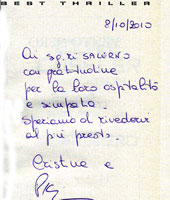 BEST THRILLER
8/10/2010
Ai sg.ri SALERNO
con gratitudine
per la loro ospitalità
e simpatia.
Speriamo di rivederci
al più presto.
Cristina e